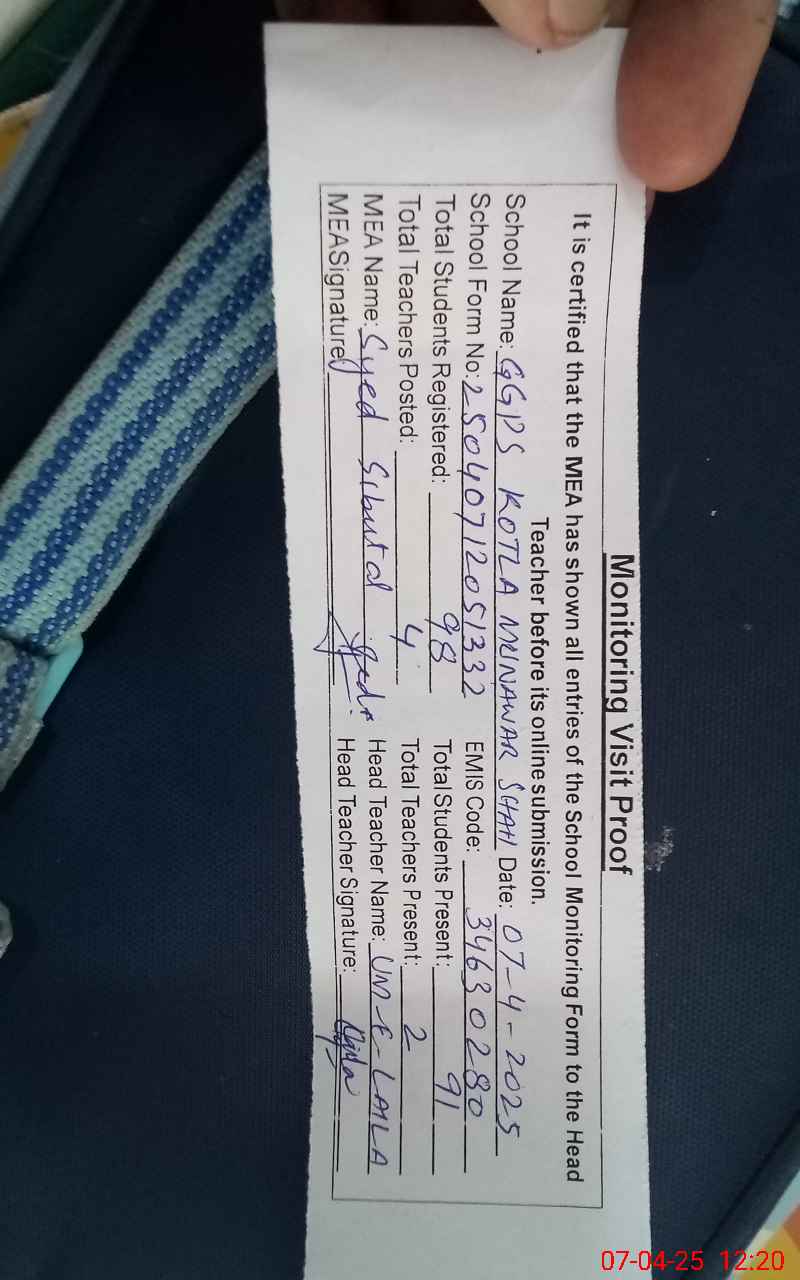 Monitoring Visit Proof
It is certified that the MEA has shown all entries of the School Monitoring Form to the Head
Teacher before its online submission.
School Name: GGPS KOTLA MUNAWAR SHAH Date: 07-4-2025
School Form No: 25040712051332 EMIS Code: 34630280
Total Students Registered: 98 Total Students Present: 91
Total Teachers Posted: 4 Total Teachers Present: 2
MEA Name: Syed Sibutal Head Teacher Name: UM-E-LAILA
MEA Signature Head Teacher Signature:
07-04-25 12:20